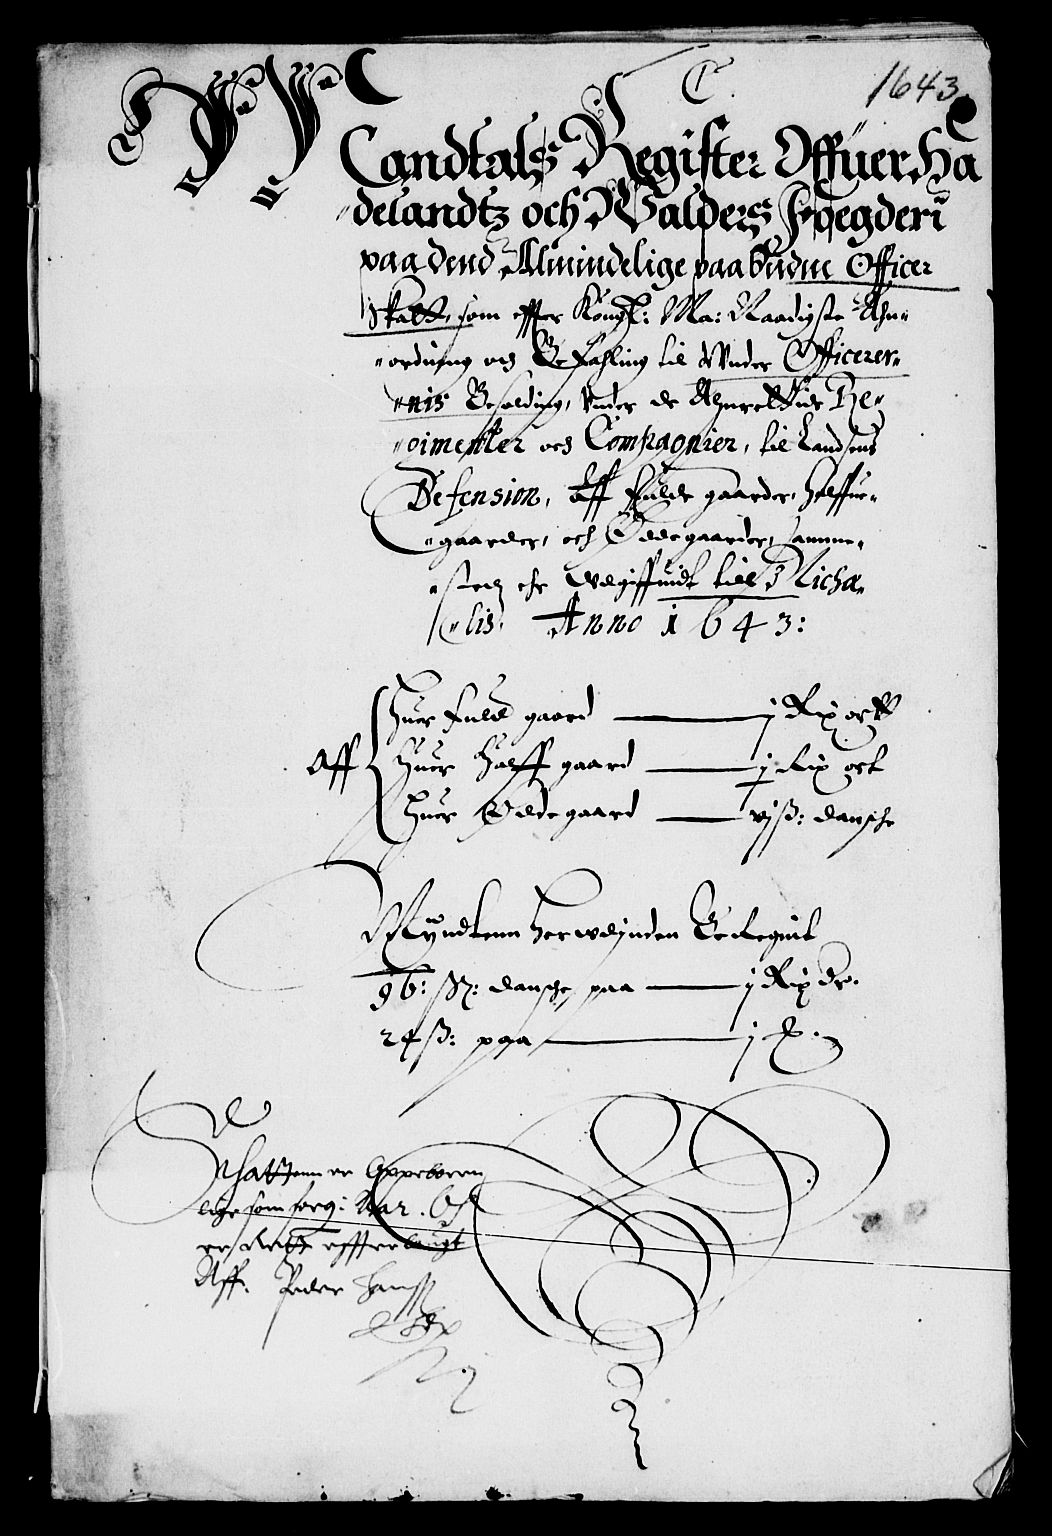 1643
C
Mandtals Register Offuer Ha
delandtz och Walders Foegderi
paa dend Almindelige paabudne Officer
Skatt, som effter Kongl: Ma: Naadigste Ahn-
ordning och Befahling til Under Officerer-
nis Besolding, under de Ahnrettede Re-
gimenter och Compagnier, til Landsens
Defension, Aff fulde gaarder, halffue-
gaarder, och Ødegaarder, samme-
stedz ehr Udgiffuidt till Micha-
elis. Anno 1643:
Aff
huer fuld gaard — j Rix ortt
huer halff gaard — ½ Rix ort
huer Ødegaard — vj ß: danske
Myndtenn herudinden Beregnit
96: ß: danske paa — j Rix dr.
24 ß: paa — j ort
Schattenn er Oppeboren
lige som forg: Aar.
er rett effterlaugt
Aff. Peder Hanss